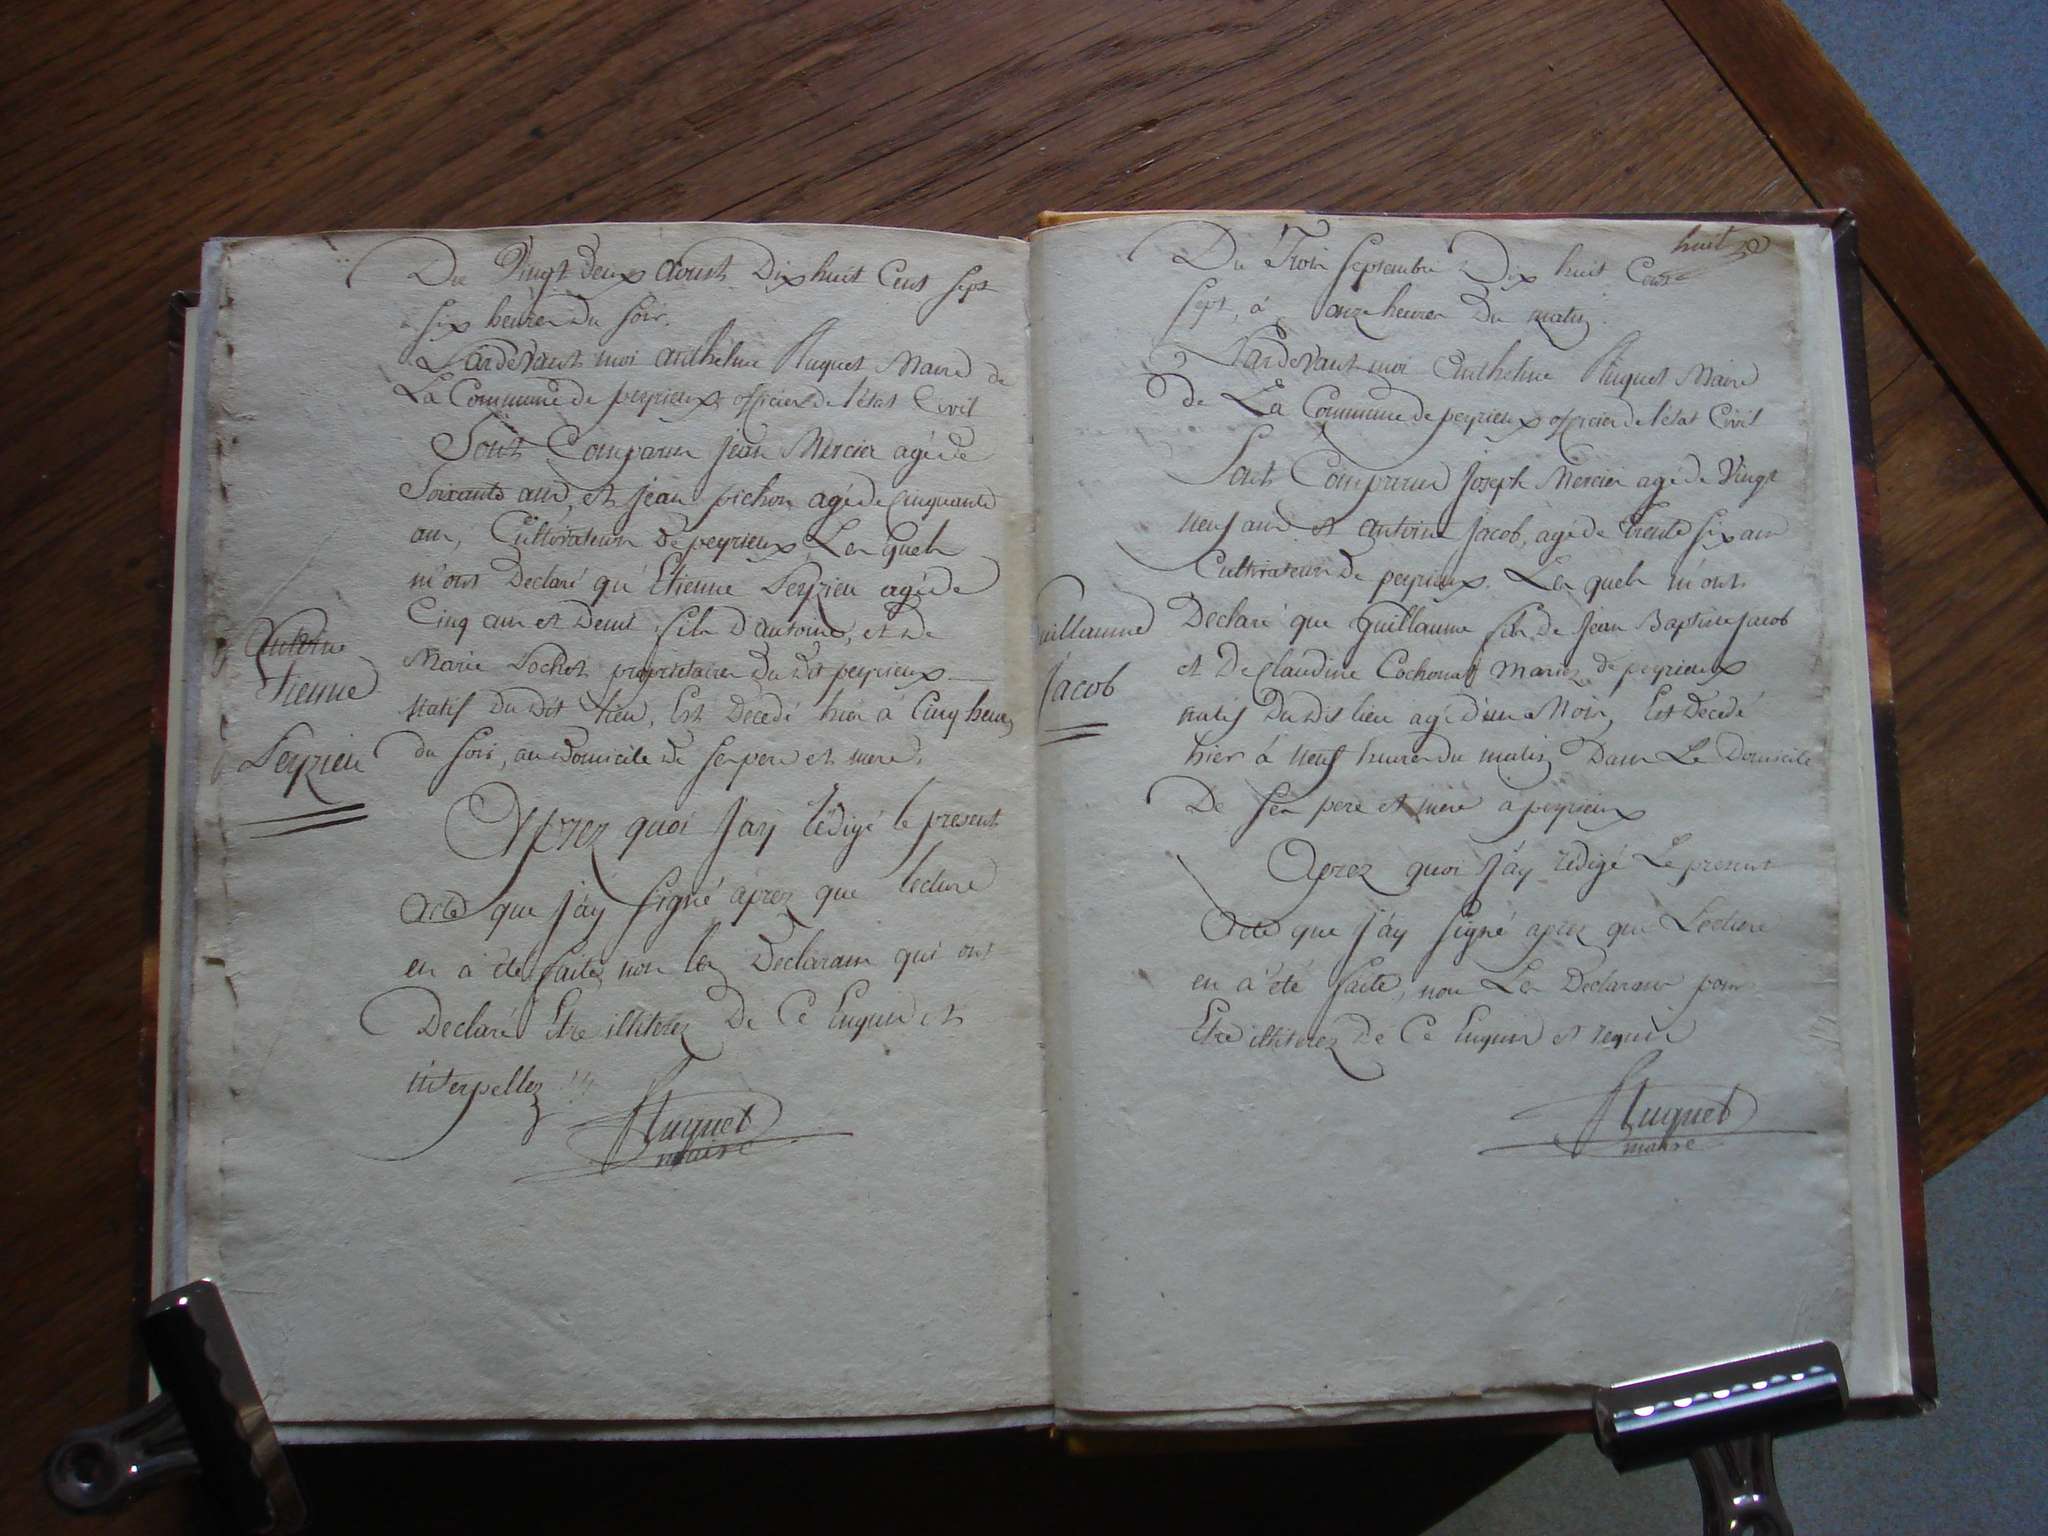 Du Vingt Deux Aoust Dix huit Cent Sept
à six heures Du Soir.
Pardevant moi Anthelme Huguet Maire de
La Commune de peyrieux officier de l'état Civil
Sont Comparus Jean Mercier agé de
Soixante ans, et Jean pichon agé de Cinquante
ans, Cultivateurs De peyrieux, Les quels
m'ont Declaré qu'Etienne Peyzieu agé de
Cinq ans et Demi fils D'antoine, et De
Marie Pochet proprietaires Du Dit peyrieux
Natif Du Dit lieu, Est Décedé hier à Cinq heures
du Soir, au Domicile De ses pere et mere.
Antoine
Etienne
Peyzieu
Aprez quoi J'ay rédigé le present
Acte que J'ay Signé aprez que lecture
en à été faite, non les Declarans qui ont
Declaré Etre illiterez De Ce Enquis et
interpellez
Huguet
maire
huit
Du Trois Septembre Dix huit Cent
Sept, à onze heures Du matin.
Pardevant moi Anthelme Huguet Maire
De La Commune de peyrieux officier de l'état Civil
Sont Comparus Joseph Mercier agé de Vingt
neuf ans et Antoine Jacob, agé de Trente Six ans
Cultivateurs De peyrieux. Les quels m'ont
Declaré que Guillaume fils de Jean Baptiste Jacob
et De Claudine Cochonat Mariez de peyrieux
natif Du Dit lieu agé d'un Mois, Est Decedé
hier à neuf heures du matin Dans Le Domicile
De Ses pere et mere a peyrieux
uillaume
Jacob
Aprez quoi J'ay redigé Le present
Acte que J'ay Signé aprez que Lecture
en à été faite, non Les Declarans pour
Etre illiterez De Ce Enquis et requis
Huguet
maire